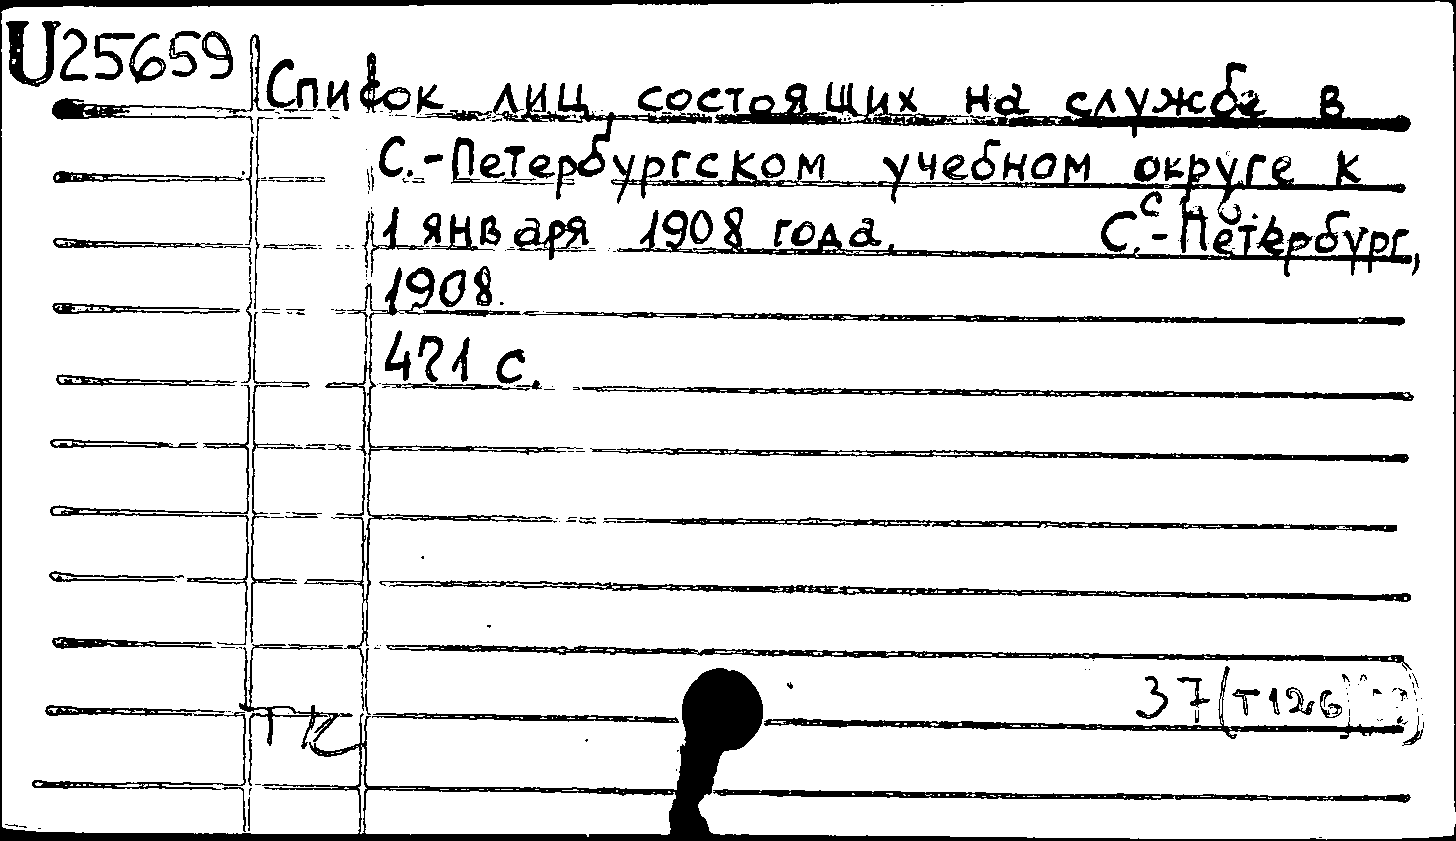 U25659
Список лиц, состоящих на службе в
С.-Петербургском учебном округе к
1 января 1908 года. С.-Петербург,
1908.
471 с.
37(Т126)
ТК